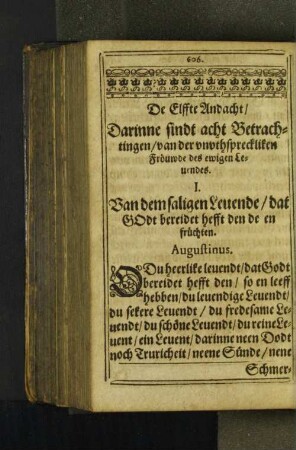 606.
De Elffte Andacht/
Darinne sindt acht Betrach-
tingen/ van der vnvthspreckliken
Fröuwde des ewigen Le-
uendes.
I.
Van dem saligen Leuende/ dat
GOdt bereidet hefft den de en
früchten.
Augustinus.
DU heerlike leuendt/ dat Godt
bereidet hefft den/ so en leeff
hebben/ du leuendige Leuendt/
du sekere Leuendt/ du fredesame Le-
uendt/ du schöne Leuendt/ du reine Le-
uent/ ein Leuent/ darinne neen Dodt
noch Truricheit/ neene Sünde/ nene
Schmer-